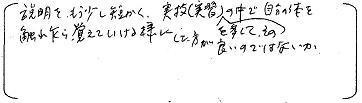 説明をもう少し短かく、実技(実習)の中で自分の体を
触れながら覚えていける様に(した方が を多くして、その
良いのではないか